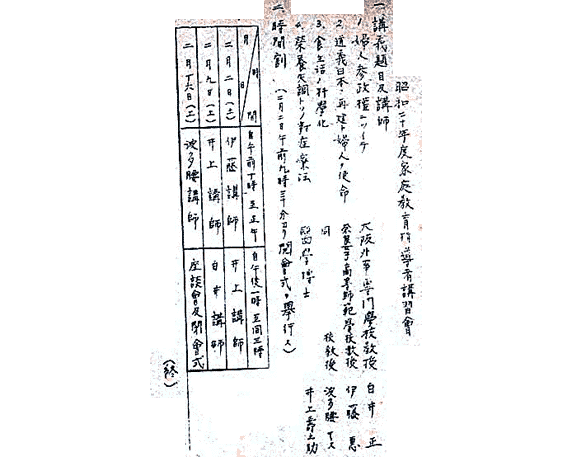 昭和二十年度家庭教育指導者講習會
一、講義題目及講師
1. 婦人参政權ニツイテ 大阪外事専門學校教授 白井 正
2. 道義日本ノ再建ト婦人ノ使命 奈良女子高等師範學校教授 伊藤 惠
3. 食生活ノ科學化 同 校教授 波多腰 ヤス
4. 榮養失調トソノ對症療法 醫學博士 井上 壽之助
二、時間割 (二月二日午前九時三十分ヨリ開會式ヲ擧行ス)
月日 時間 自午前十時至正午 自午後一時至同三時
二月二日(土) 伊藤講師 井上講師
二月九日(土) 井上講師 白井講師
二月十六日(土) 波多腰講師 座談會及閉會式
(終)